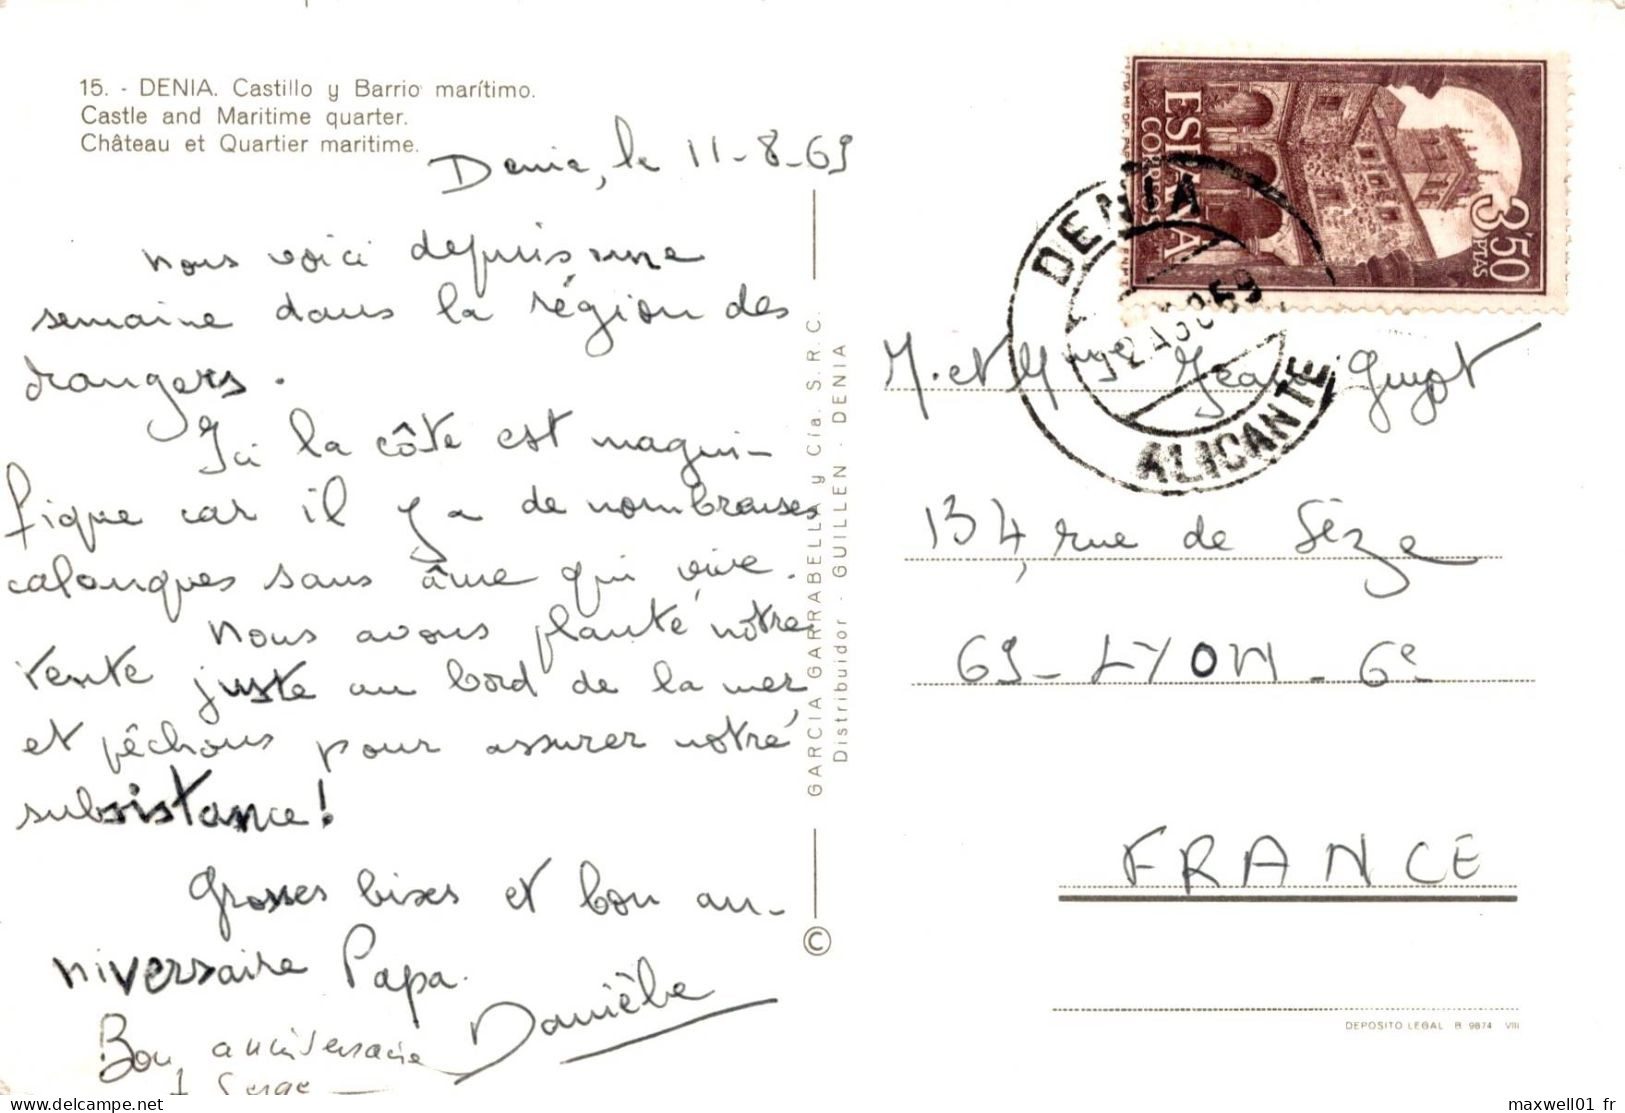 15. - DENIA. Castillo y Barrio marítimo.
Castle and Maritime quarter.
Château et Quartier maritime.
Denia, le 11-8-69
nous voici depuis une
semaine dans la région des
orangers.
Ici la côte est magni-
fique car il y a de nombreuses
calanques sans âme qui vive.
Nous avons planté notre
tente juste au bord de la mer
et pêchons pour assurer notre
subsistance!
Grosses bises et bon an-
niversaire Papa.
Danièle
Bon anniversaire
Serge
GARCIA GARRABELLA y Cía. S.R.C.
Distribuidor - GUILLEN - DENIA
©
ESPAÑA
CORREOS
3'50
PTAS
DENIA
ALICANTE
M. et Mme Jean Guyot
134, rue de Sèze
69 - LYON - 6e
FRANCE
DEPOSITO LEGAL B. 9874 VIII
maxwell01 fr